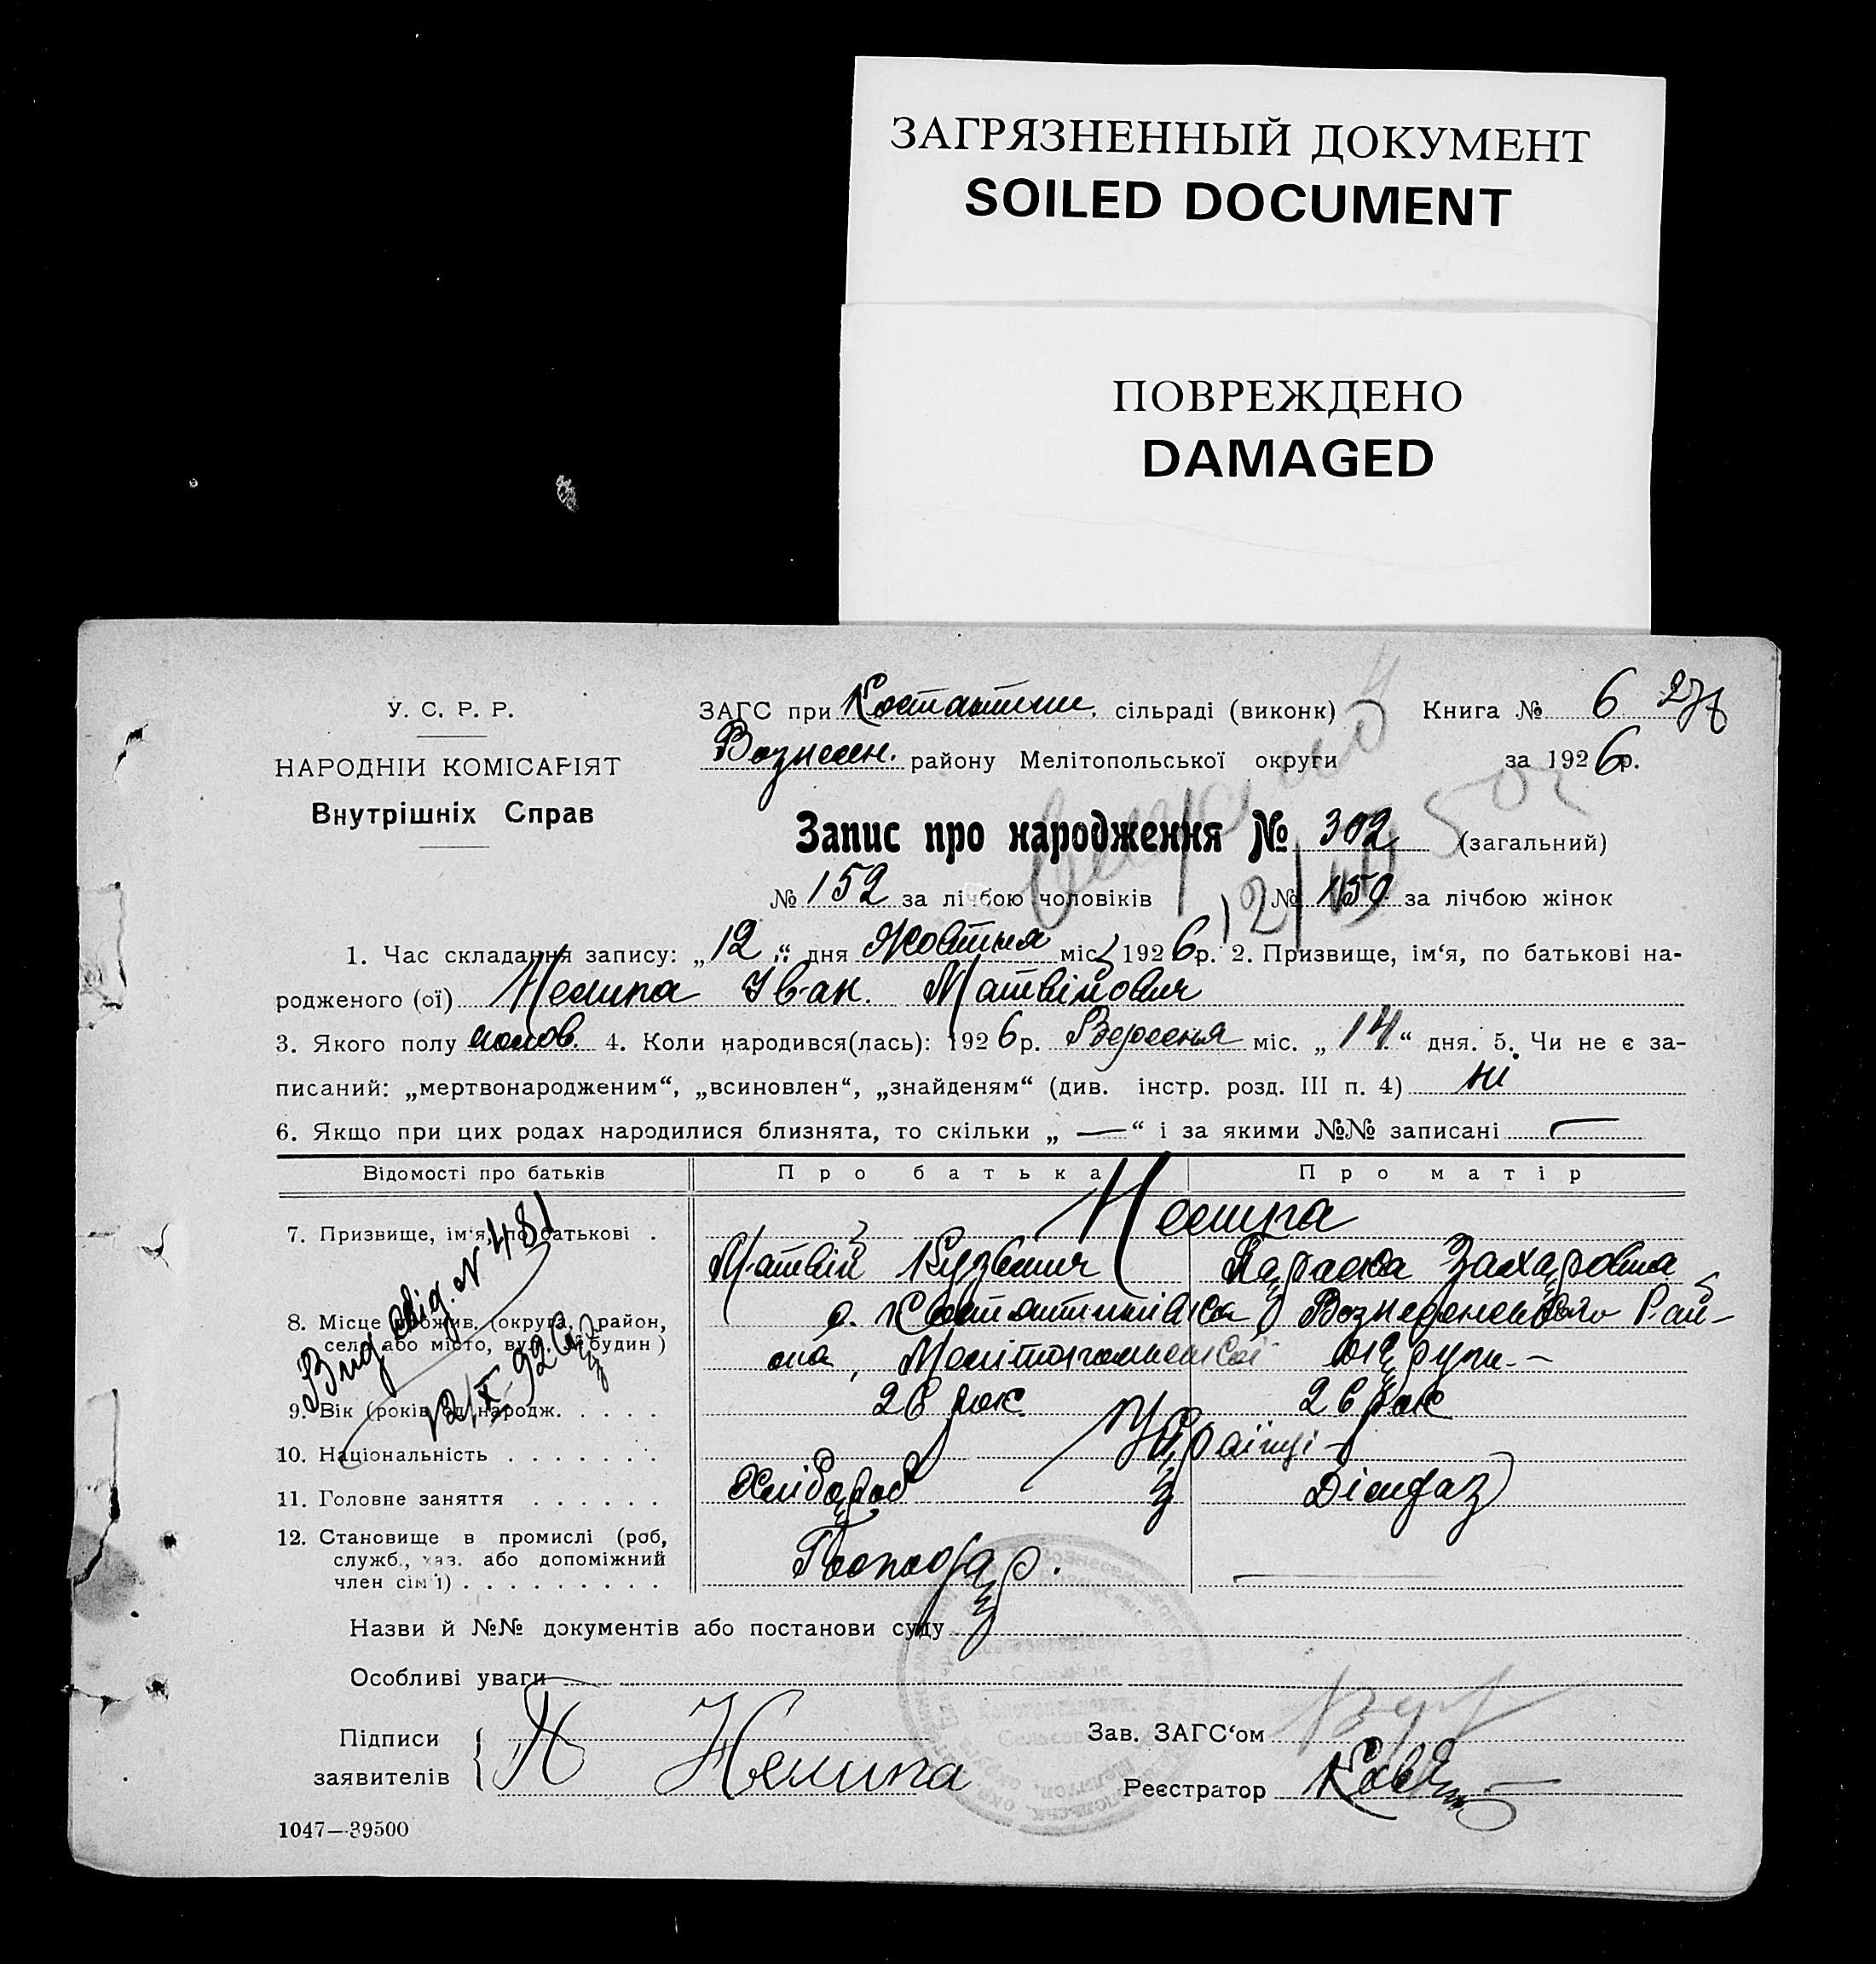 ЗАГРЯЗНЕННЫЙ ДОКУМЕНТ
SOILED DOCUMENT
ПОВРЕЖДЕНО
DAMAGED
У. С. Р. Р.
НАРОДНІИ КОМІСАРІЯТ
Внутрішніх Справ
ЗАГС при Костантин. сільраді (виконк) Книга № 6
Вознесен. району Мелітопольської округи за 1926 р.
Запис про народження № 302 (загальний)
№ 152 за лічбою чоловіків № 150 за лічбою жінок
1. Час складання запису: „12“ дня Жовтня міс. 1926 р. 2. Призвище, ім‘я, по батькові на-
родженого (ої) Нелипа Іван Матвійович
3. Якого полу чолов. 4. Коли народився(лась): 1926 р. Вересня міс. „14“ дня. 5. Чи не є за-
писаний: „мертвонародженим“, „всиновлен“, „знайденям“ (див. інстр. розд. III п. 4) ні
6. Якщо при цих родах народилися близнята, то скільки „ — “ і за якими №№ записані —
Відомості про батьків Про батька Про матір
7. Призвище, ім‘я, по батькові . Нелипа
Матвій Кузьмич Параска Захаровна
8. Місце прожив. (округа, район,
село або місто, вул. № будин)
с. Костянтинівка Вознесенського Рай-
она, Мелітопольської округи —
9. Вік (років од народж. . . . . 26 рок. 26 рок
10. Національність . . . . . . . Українці
11. Головне заняття . . . . . . Хлібороб
12. Становище в промислі (роб,
служб., хаз. або допоміжний
член сім‘ї) . . . . . . . . . Господар. —
Вид. свід. № 481
12/X-926
Назви й №№ документів або постанови суду
Особливі уваги
Підписи
заявителів Нелипа
Зав. ЗАГС‘ом
Реєстратор
1047—39500